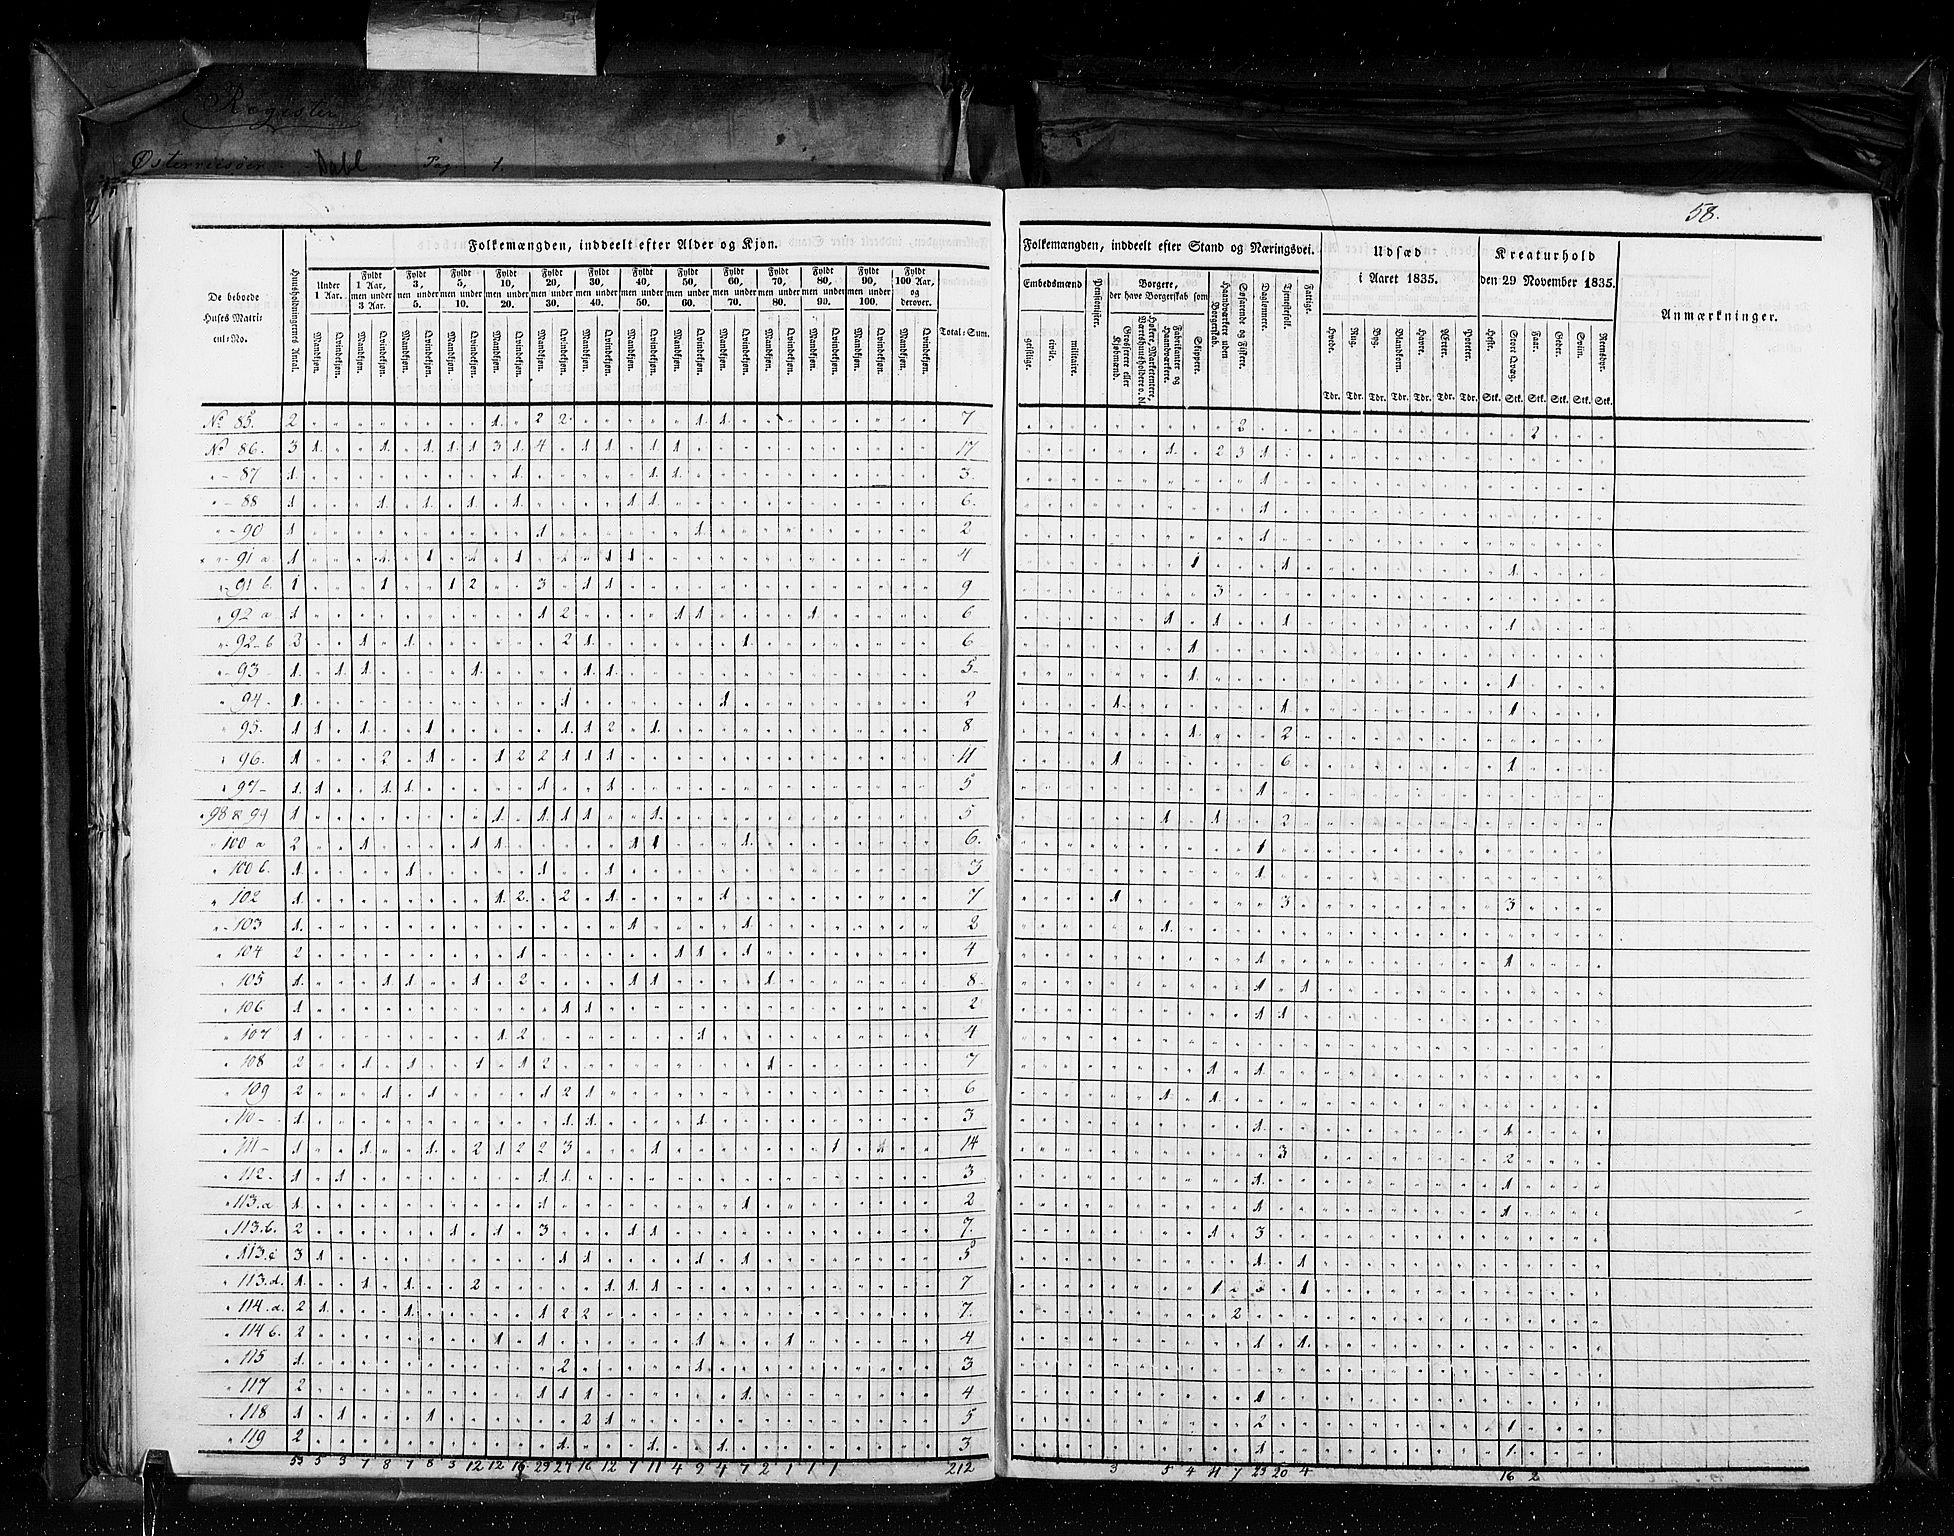 Register
Østerriisøer Dahl Pag 1.
58.
Folkemængden, inddeelt efter Alder og Kjøn.
De beboede Huses Matricul-No.
Huusholdningernes Antal.
Under 1 Aar.
Fyldt 1 Aar, men under 3 Aar.
Fyldt 3, men under 5.
Fyldt 5, men under 10.
Fyldt 10, men under 20.
Fyldt 20, men under 30.
Fyldt 30, men under 40.
Fyldt 40, men under 50.
Fyldt 50, men under 60.
Fyldt 60, men under 70.
Fyldt 70, men under 80.
Fyldt 80, men under 90.
Fyldt 90, men under 100.
Fyldt 100 Aar, og derover.
Mandkjøn. Qvindekjøn.
Total-Sum.
Folkemængden, inddeelt efter Stand og Næringsvei.
Embedsmænd
geistlige. civile. militaire.
Pensionister.
Borgere, der have Borgerskab som
Grosserere eller Kjøbmænd.
Høkere, Marketentere, Værtshuusholdere o. dl.
Fabrikanter og Haandværkere.
Skippere.
Haandværkere uden Borgerskab.
Søfarende og Fiskere.
Daglønnere.
Tjenestefolk.
Fattige.
Udsæd i Aaret 1835.
Hvede. Rug. Byg. Blandkorn. Havre. Ærter. Poteter.
Tdr. Tdr. Tdr. Tdr. Tdr. Tdr. Tdr.
Kreaturhold den 29 November 1835.
Heste. Stort Qvæg. Faar. Gieder. Sviin. Reensdyr.
Stk. Stk. Stk. Stk. Stk. Stk.
Anmærkninger.
No 85. 2 1 2 2 1 1 7 2 2
No 86. 3 1 1 1 1 1 3 1 4 1 1 1 1 17 1 2 3 1
87 1 1 1 1 3 1
88 1 1 1 1 1 1 1 6 1
90 1 1 1 2 1
91 a 1 4 1 1 1
91 b. 1 1 1 2 3 1 1 9 3
92 a 1 1 2 1 1 1 6 1 1 1 1
92 b 1 1 2 1 1 6 1
93 1 1 1 1 1 1 5 1 1
94 1 1 1 2 1 1 1
95. 1 1 1 1 1 1 2 1 8 1 2
96. 1 2 1 1 2 2 1 1 1 11 1 6 1
97 1 1 1 1 1 1 5 1
98 & 99 1 1 1 1 1 1 5 1 1 2
100 a 2 1 1 1 1 1 1 6 1
100 b. 1 1 1 1 3 1
102 1 1 2 2 1 1 7 1 3 3
103 1 1 1 2 1
104 2 1 1 1 1 4 1 1
105 1 1 1 1 2 1 1 1 8 1 1
106 1 1 1 2 1 1
107 1 1 2 1 4
108 2 1 1 1 1 2 1 7 1 1
109 2 1 1 1 2 1 6 1 1
1 1 1 1 3 1 1
111 1 1 1 2 1 2 2 3 1 1 1 14 3 2
112 1 1 1 1 3 1 1
113.a 1 1 1 2 1 1
113.b. 2 1 1 3 1 1 7 1 3
113.c 3 1 1 1 1 1 5 1 1
113.d. 1 1 1 2 1 1 1 7 1
114.a. 2 1 1 1 2 2 7 2
114 b. 2 1 1 1 1 4 1 1
115 1 2 1 3
117 2 1 1 1 1 4 1
118 1 1 1 2 1 5 2 1
119 2 1 1 1 3 1 1
53 5 3 7 8 7 8 3 12 12 23 27 16 12 7 11 4 9 4 7 2 1 1 1 212 3 5 4 11 7 23 20 4 16 2